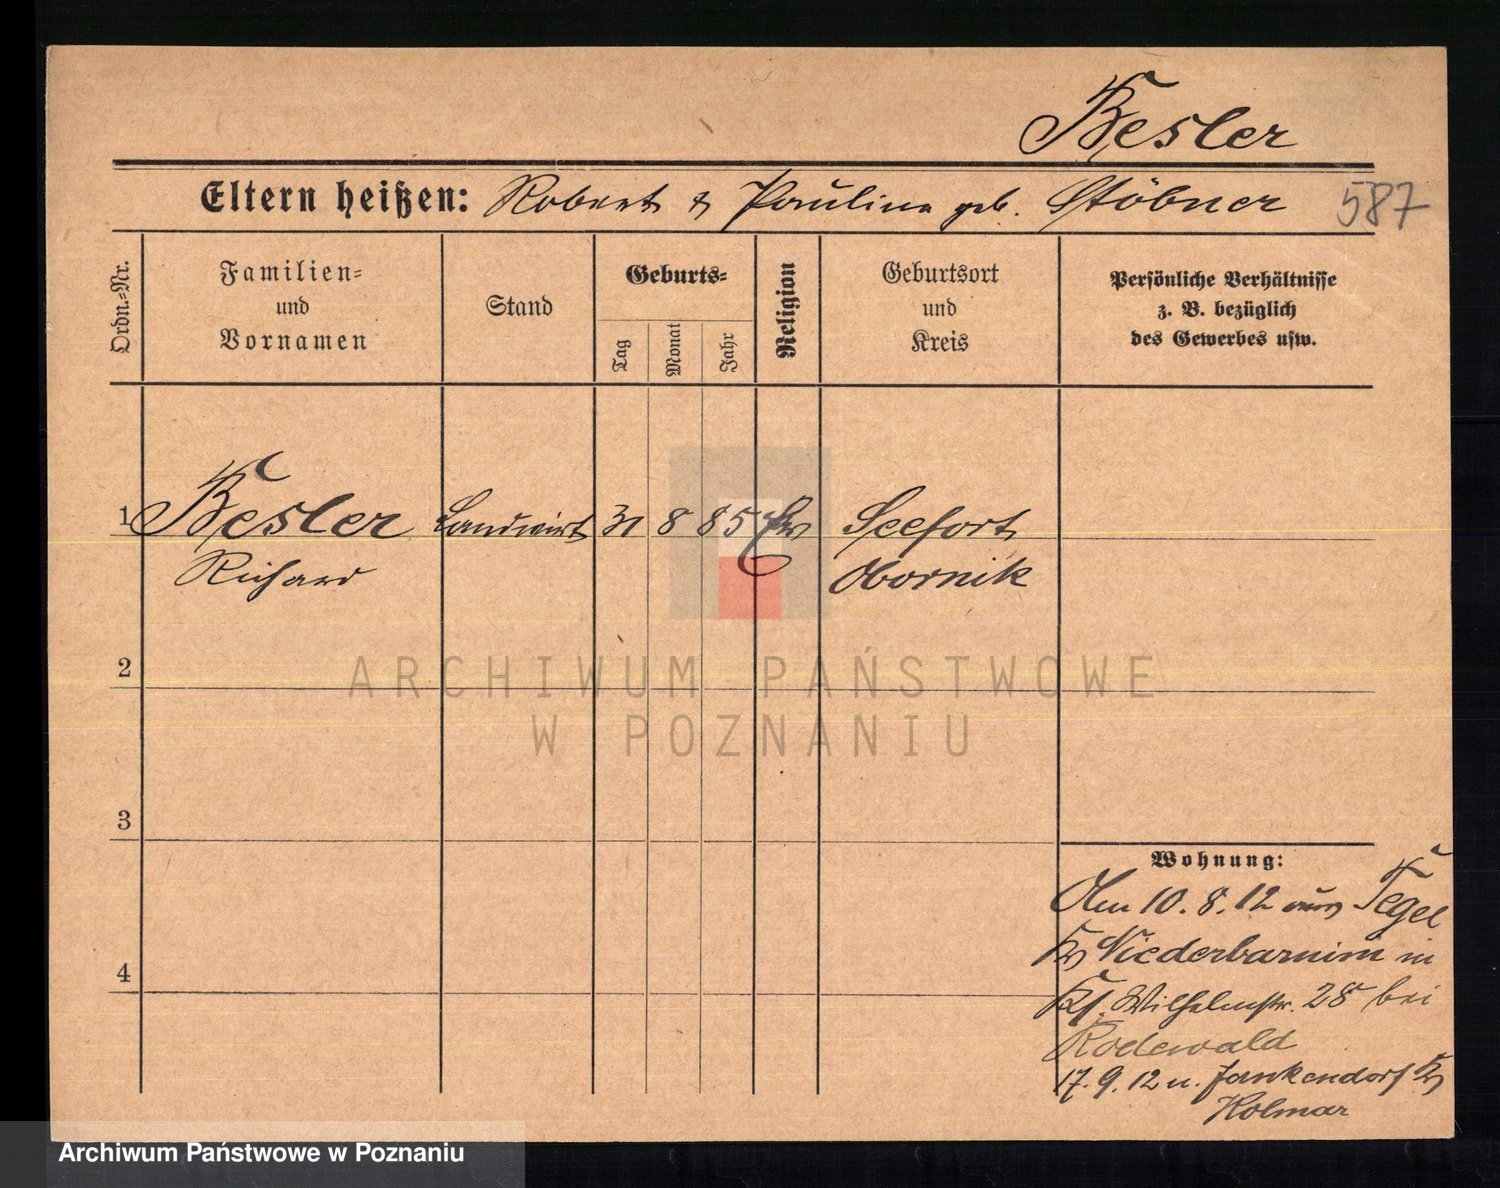 Besler
Eltern heißen: Robert & Pauline geb. Stöbner 587
Ordn.-Nr.
Familien-
und
Vornamen
Stand
Geburts-
Tag
Monat
Jahr
Religion
Geburtsort
und
Kreis
Persönliche Verhältnisse
z. B. bezüglich
des Gewerbes usw.
1 Besler Landwirt 31 8 85 Seefort
Richard Obornik
2
ARCHIWUM PAŃSTWOWE
W POZNANIU
3
Wohnung:
Am 10.8.12 aus Tegel
Niederbarnim in
Wilhelmstr. 28 bei
4
Rodewald
17.9.12 n. Jankendorf
Kolmar
Archiwum Państwowe w Poznaniu